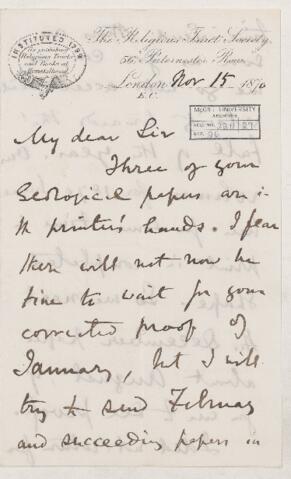 INSTITUTED 1799
The Religious Tract Society,
56, Paternoster Row,
London Nov 15 1870
E.C.
McGILL UNIVERSITY
ARCHIVES
ACC. NO.
REF.
My dear Sir
Three of your
Geological papers are in
the printer's hands. I fear
there will not now be
time to wait for your
corrected proof of
January, but I will
try to send February
and succeeding papers in